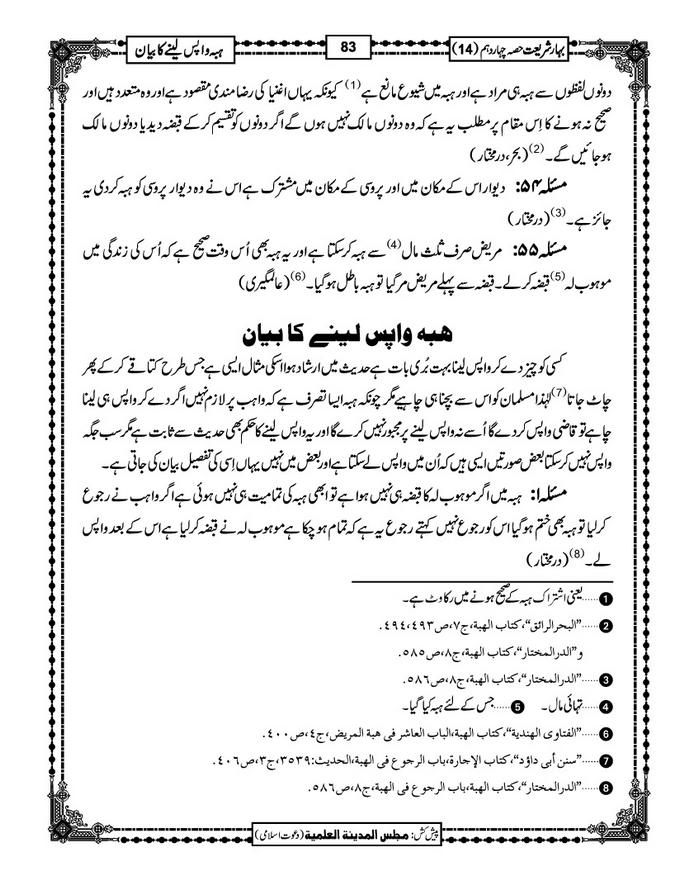 بہارِ شریعت حصہ چہاردہم (14)
83
ہبہ واپس لینے کا بیان
دونوں لفظوں سے ہبہ ہی مراد ہے اور ہبہ میں شیوع مانع ہے(1) کیونکہ یہاں اغنیا کی رضا مندی مقصود ہے اور وہ متعدد ہیں اور
صحیح نہ ہونے کا اِس مقام پر مطلب یہ ہے کہ وہ دونوں مالک نہیں ہوں گے اگر دونوں کو تقسیم کرکے قبضہ دیدیا دونوں مالک
ہوجائیں گے۔(2) (بحر، درمختار)
مسئلہ ۵۴: دیوار اس کے مکان میں اور پروسی کے مکان میں مشترک ہے اس نے وہ دیوار پروسی کو ہبہ کردی یہ
جائز ہے۔(3) (درمختار)
مسئلہ ۵۵: مریض صرف ثلث مال(4) سے ہبہ کرسکتا ہے اور یہ ہبہ بھی اُس وقت صحیح ہے کہ اُس کی زندگی میں
موہوب لہ(5) قبضہ کرلے۔ قبضہ سے پہلے مریض مرگیا تو ہبہ باطل ہوگیا۔(6) (عالمگیری)
ھبہ واپس لینے کا بیان
کسی کو چیز دے کر واپس لینا بہت بُری بات ہے حدیث میں ارشاد ہوا اسکی مثال ایسی ہے جس طرح کتا قے کرکے پھر
چاٹ جاتا(7) لہٰذا مسلمان کو اس سے بچنا ہی چاہیے مگر چونکہ ہبہ ایسا تصرف ہے کہ واہب پر لازم نہیں اگر دے کر واپس ہی لینا
چاہے تو قاضی واپس کردے گا اُسے نہ واپس لینے پر مجبور نہیں کرے گا اور یہ واپس لینے کا حکم بھی حدیث سے ثابت ہے مگر سب جگہ
واپس نہیں کرسکتا بعض صورتیں ایسی ہیں کہ اُن میں واپس لے سکتا ہے اور بعض میں نہیں یہاں اِسی کی تفصیل بیان کی جاتی ہے۔
مسئلہ ۱: ہبہ میں اگر موہوب لہ کا قبضہ ہی نہیں ہوا ہے تو ابھی ہبہ کی تمامیت ہی نہیں ہوئی ہے اگر واہب نے رجوع
کرلیا تو ہبہ بھی ختم ہوگیا اس کو رجوع نہیں کہتے رجوع یہ ہے کہ تمام ہوچکا ہے موہوب لہ نے قبضہ کرلیا ہے اس کے بعد واپس
لے۔(8) (درمختار)
1 ......یعنی اشتراک ہبہ کے صحیح ہونے میں رکاوٹ ہے۔
2 ......"البحرالرائق"، کتاب الهبة، ج٧، ص٤٩٤،٤٩٣.
و"الدرالمختار"، کتاب الهبة، ج٨، ص٥٨٥.
3 ......"الدرالمختار"، کتاب الهبة، ج٨، ص٥٨٦.
4 ......تہائی مال۔ 5 ......جس کے لئے ہبہ کیا گیا۔
6 ......"الفتاوى الهندية"، کتاب الهبة، الباب العاشر فی هبة المريض، ج٤، ص٤٠٠.
7 ......"سنن أبی داؤد"، کتاب الإجارة، باب الرجوع فی الهبة، الحديث: ٣٥٣٩، ج٣، ص٤٠٦.
8 ......"الدرالمختار"، کتاب الهبة، باب الرجوع فی الهبة، ج٨، ص٥٨٦.
پیش کش: مجلس المدينة العلمية (دعوت اسلامی)